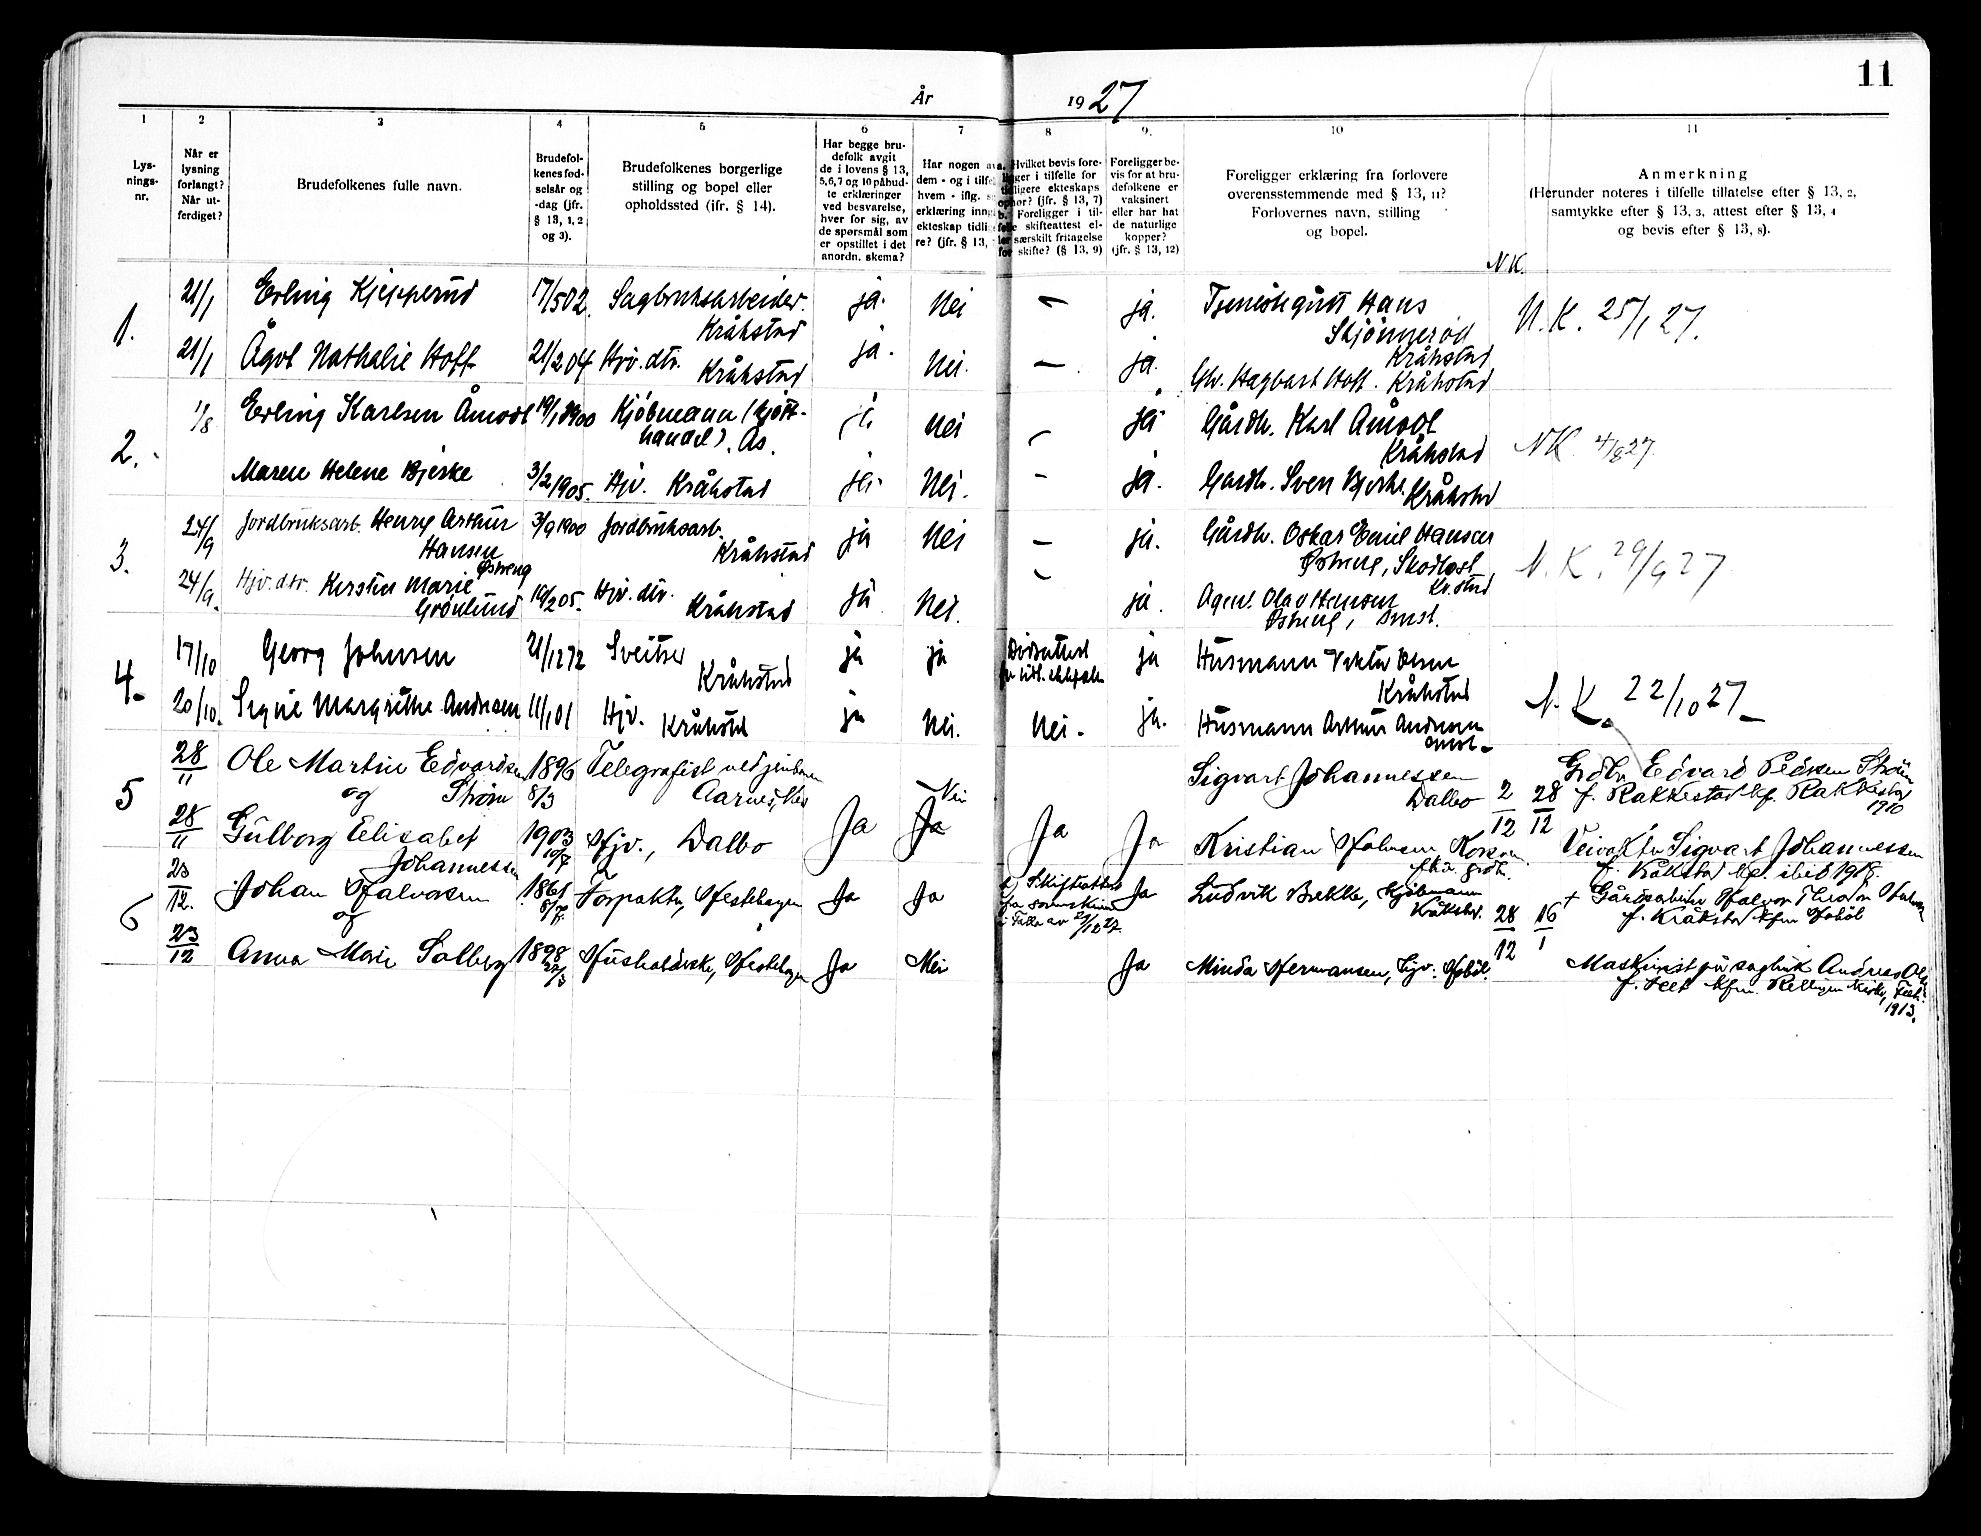 11
År 1927
1
Lys-
nings-
nr.
2
Når er
lysning
forlangt?
Når ut-
ferdiget?
3
Brudefolkenes fulle navn.
4
Brudefol-
kenes fød-
selsår og
-dag (jfr.
§ 13, 1, 2
og 3).
5
Brudefolkenes borgerlige
stilling og bopel eller
opholdssted (ifr. § 14).
6
Har begge bru-
defolk avgit
de i lovens § 13,
5,6,7 og 10 påbud-
te erklæringer
ved besvarelse,
hver for sig, av
de spørsmål som
er opstillet i det
anordn. skema?
7
Har nogen av
dem - og i tilfe
hvem - iflg.
erklæring inng
ekteskap tidli
re? (jfr. § 13,
8
Hvilket bevis fore-
ligger i tilfelle for
tidligere ekteskaps
ophør? (jfr. § 13, 7)
b. Foreligger i til-
felle skifteattest el-
ler særskilt fritagelse
for skifte? (§ 13, 9)
9.
Foreligger be-
vis for at bru-
defolkene er
vaksinert
eller har hat
de naturlige
kopper?
(jfr. § 13, 12)
10
Foreligger erklæring fra forlovere
overensstemmende med § 13, 11?
Forlovernes navn, stilling
og bopel.
N.K.
11
Anmerkning
(Herunder noteres i tilfelle tillatelse efter § 13, 2,
samtykke efter § 13, 3, attest efter § 13, 4
og bevis efter § 13, 8).
1. 21/1 Erling Kjepperud 17/5 02. Sagbruksarbeider. Kråkstad ja. Nei – ja. Hans Skjönnerød Kråkstad N.K. 25/1 27.
21/1 Ågot Nathalie Hoff 21/2 04 Hjv. dtr. Kråkstad ja. Nei. – ja. Gbr. Hagbart Hoff. Kråkstad
2. 1/8 Erling Karlsen Åmodt 19/1 1900 Kjöbmann (kjött-
handel). Ås. ja Nei – ja Gårdbr. Karl Åmodt Kråkstad NK. 4/8 27.
Maren Helene Bjerke 3/2 1905. Hjv. Kråkstad ja. Nei. – ja. Gardbr. Sven Bjerke. Kråkstad
3. 24/9 Jordbruksarb. Henry Arthur
Hansen Østreng 3/9 1900 Jordbruksarb. Kråkstad ja Nei – ja. Gårdbr. Oskar Emil Hansen
Østreng, Skodbost Kr.stad N.K. 29/9 27
24/9. Hjv. dtr. Kirsten Marie
Grönlund 19/2 05. Hjv. dtr. Kråkstad ja Nei. – ja. Olav Hansen
Østreng,
4. 17/10 Georg Johnsen 21/12 72 Sveitser Kråkstad ja ja Dödsattest ja Husmann Viktor Olsen Kråkstad N.K. 22/10 27
20/10. Signe Margrethe Andresen 11/1 01 Hjv. Kråkstad ja Nei. Nei. ja. Husmann Arthur Andresen
5 28/11 Ole Martin Edvardsen
og Strøm 1896 8/3 Telegrafist ved jernbanen
Aarnes, Nes Sigvart Johannessen
Dalbo 2/12 28/12 Grdbr. Edvard Pedersen Strøm
f. Rakkestad kf. Rakkestad
1910
28/11 Gulborg Elisabet
Johannessen 1903 10/7 Hjv., Dalbo Ja Nei Ja Ja Ja Kristian Halvorsen Veivokter Sigvart Johannessen
f. Kråkstad
6 23/12. Johan Halvorsen
og 1861 Forpakter, Hestehagen Ja Ja Skifteattest
fra sorenskriver
i Follo av Ja Ludvik Bakke, Kjöbmann
Kråkstad. 28/12 16/1 + Gårdsarbeider Halvor
f. Kråkstad kfm. Hobøl
23/12 Anna Marie Solberg 1898 Husholderske, Hestehagen Ja Nei Ja Minda Hermansen, Hjv. Hobøl. Maskinist på sagbruk Andreas
f. Feet kfm. 1913.